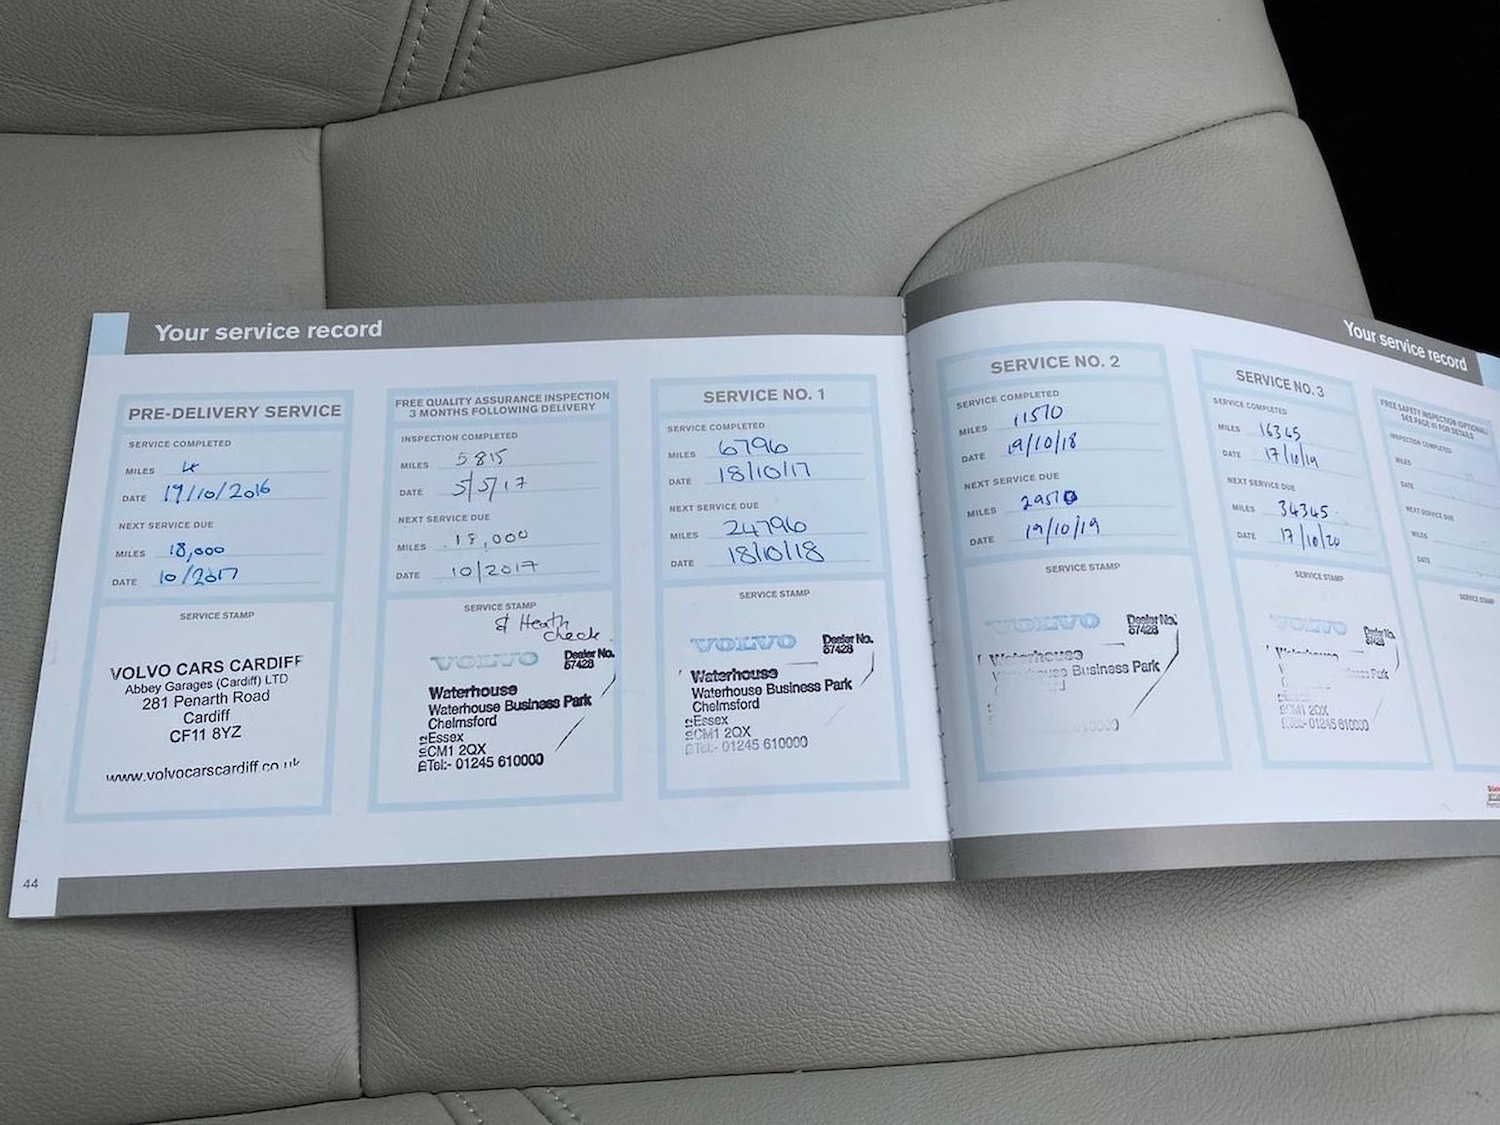 Your service record
PRE-DELIVERY SERVICE
SERVICE COMPLETED
MILES 4
DATE 19/10/2016
NEXT SERVICE DUE
MILES 18,000
DATE 10/2017
SERVICE STAMP
VOLVO CARS CARDIFF
Abbey Garages (Cardiff) LTD
281 Penarth Road
Cardiff
CF11 8YZ
www.volvocarscardiff.co.uk
44
FREE QUALITY ASSURANCE INSPECTION
3 MONTHS FOLLOWING DELIVERY
INSPECTION COMPLETED
MILES 5815
DATE 5/5/17
NEXT SERVICE DUE
MILES 18,000
DATE 10/2017
SERVICE STAMP
Heath
check
VOLVO Dealer No.
57428
Waterhouse
Waterhouse Business Park
Chelmsford
Essex
CM1 2QX
Tel:- 01245 610000
SERVICE NO. 1
SERVICE COMPLETED
MILES 6796
DATE 18/10/17
NEXT SERVICE DUE
MILES 24796
DATE 18/10/18
SERVICE STAMP
VOLVO Dealer No.
57428
Waterhouse
Waterhouse Business Park
Chelmsford
Essex
CM1 2QX
Tel:- 01245 610000
Your service record
SERVICE NO. 2
SERVICE COMPLETED
MILES 11570
DATE 19/10/18
NEXT SERVICE DUE
MILES 29570
DATE 19/10/19
SERVICE STAMP
VOLVO Dealer No.
57428
Waterhouse
Waterhouse Business Park
SERVICE NO. 3
SERVICE COMPLETED
MILES 16345
DATE 17/10/19
NEXT SERVICE DUE
MILES 34345
DATE 17/10/20
SERVICE STAMP
VOLVO Dealer No.
57428
Waterhouse
Park
CM1 2QX
01245 610000
FREE SAFETY INSPECTION (OPTIONAL)
SEE PAGE FOR DETAILS
INSPECTION COMPLETED
MILES
DATE
NEXT SERVICE DUE
MILES
DATE
SERVICE STAMP